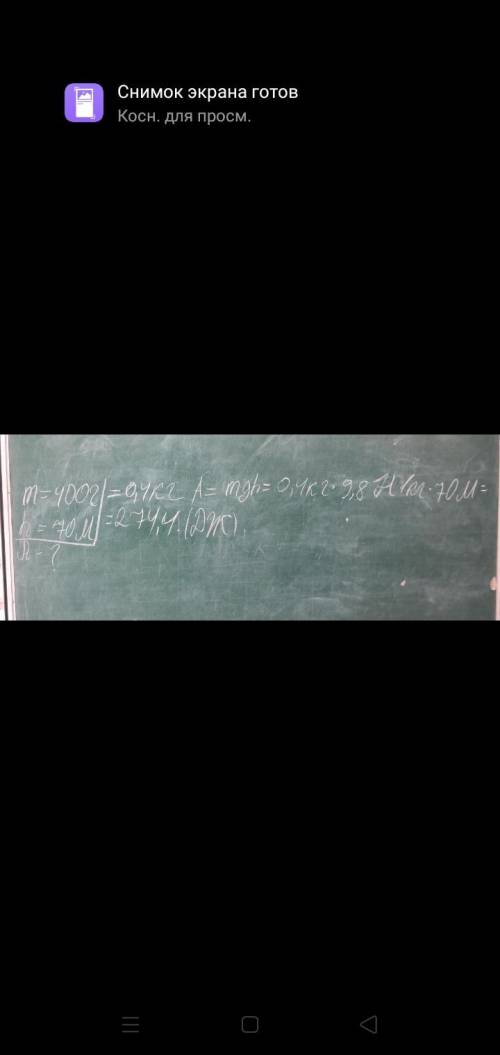 Снимок экрана готов
Косн. для просм.
m=400г =0,4кг A=mgh=0,4кг·9,8Н/кг·70м=
h=70м =274,4(Дж).
A-?